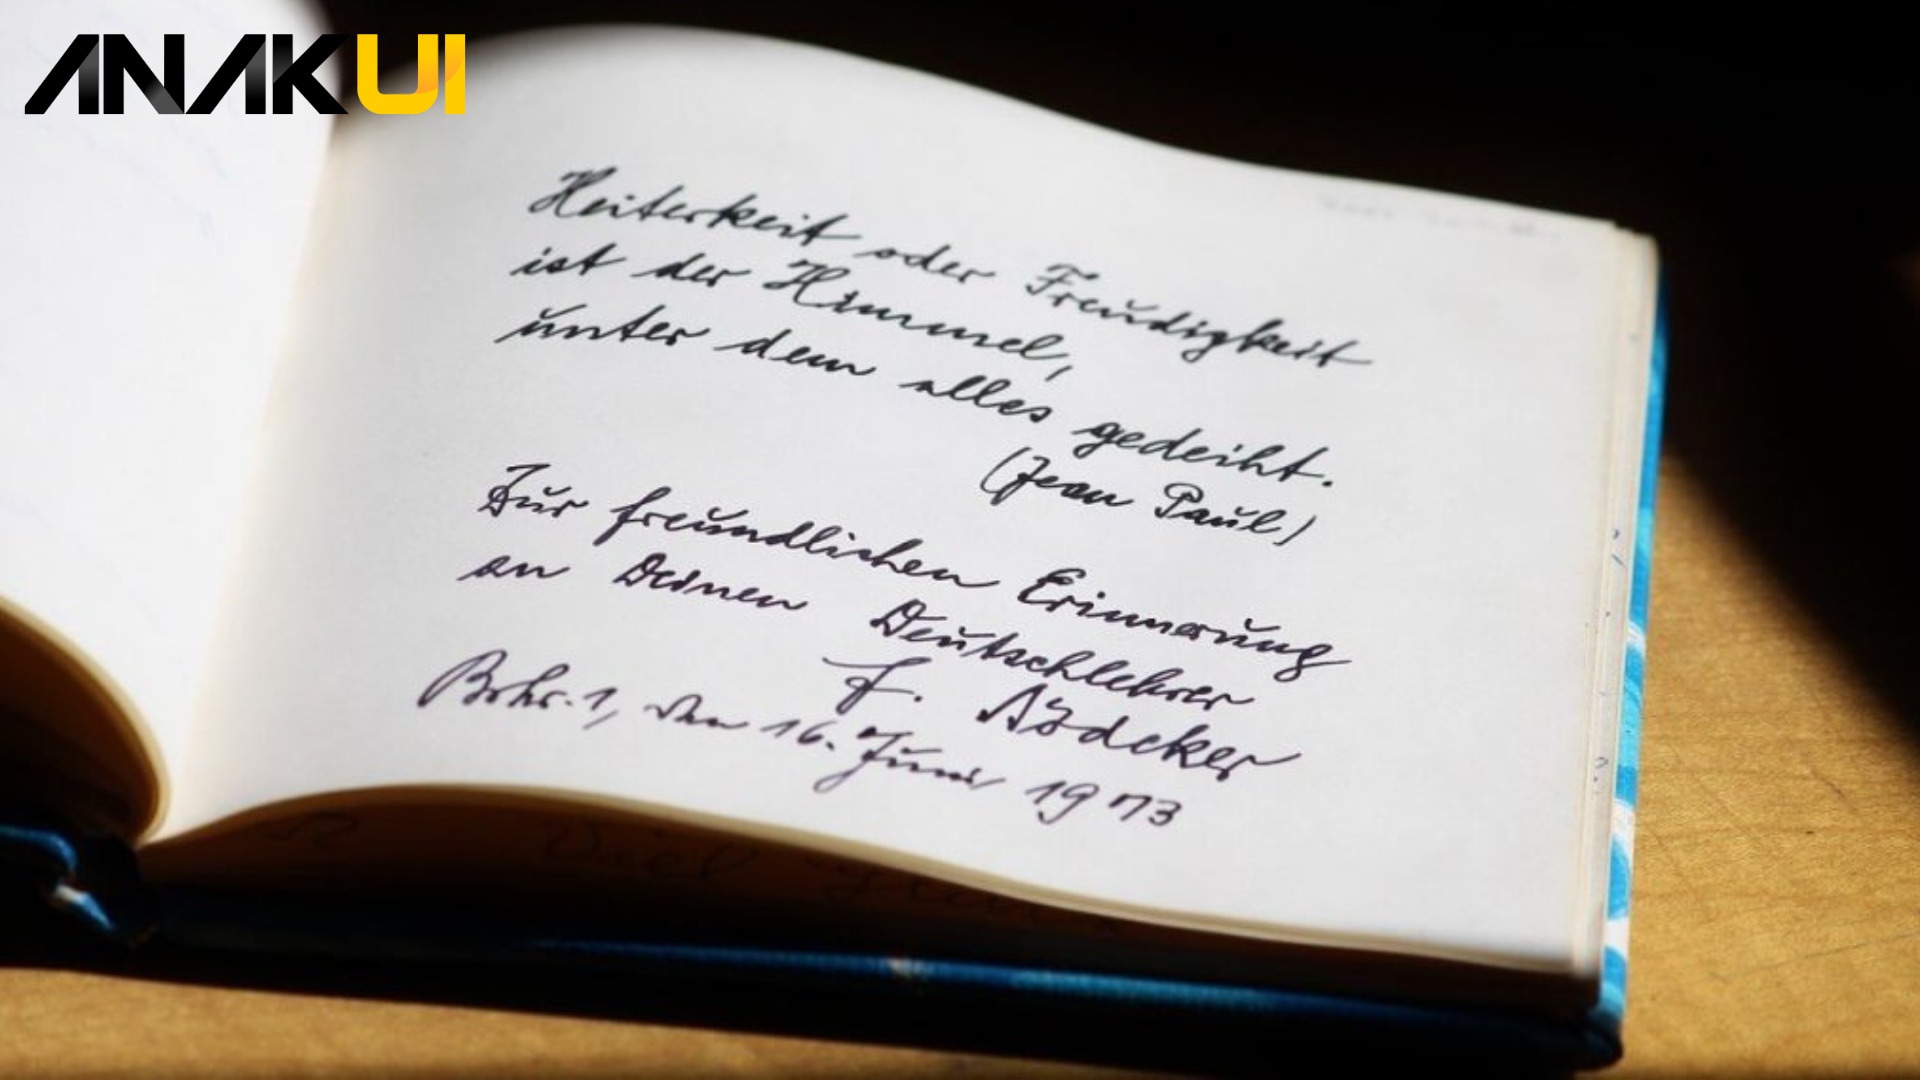 ANAKUI
Heiterkeit oder Freudigkeit
ist der Himmel,
unter dem alles gedeiht.
(Jean Paul)
Zur freundlichen Erinnerung
an Deinen Deutschlehrer
F.
den 16. Juni 1973